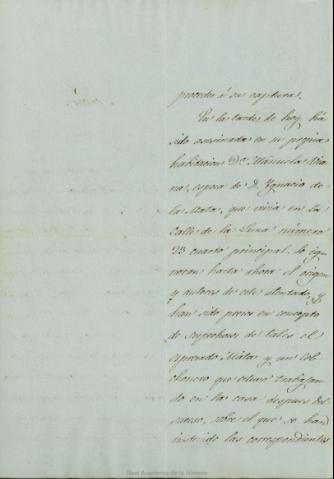 proceder á su captura.
En la tarde de hoy ha
sido asesinada en su propia
habitacion Dª Manuela Via
na, esposa de D. Ygnacio de
la Mata, que vivia en la
Calle de la Luna número
23 cuarto principal. Se ig-
noran hasta ahora el origen
y autores de este atentado, y
han sido presos en concepto
de sospechosos de tales el
espresado Mata y un col
chonero que estuvo trabajan
do en la casa despues del
suceso, sobre el que se han
instruido las correspondientes
Real Academia de la Historia